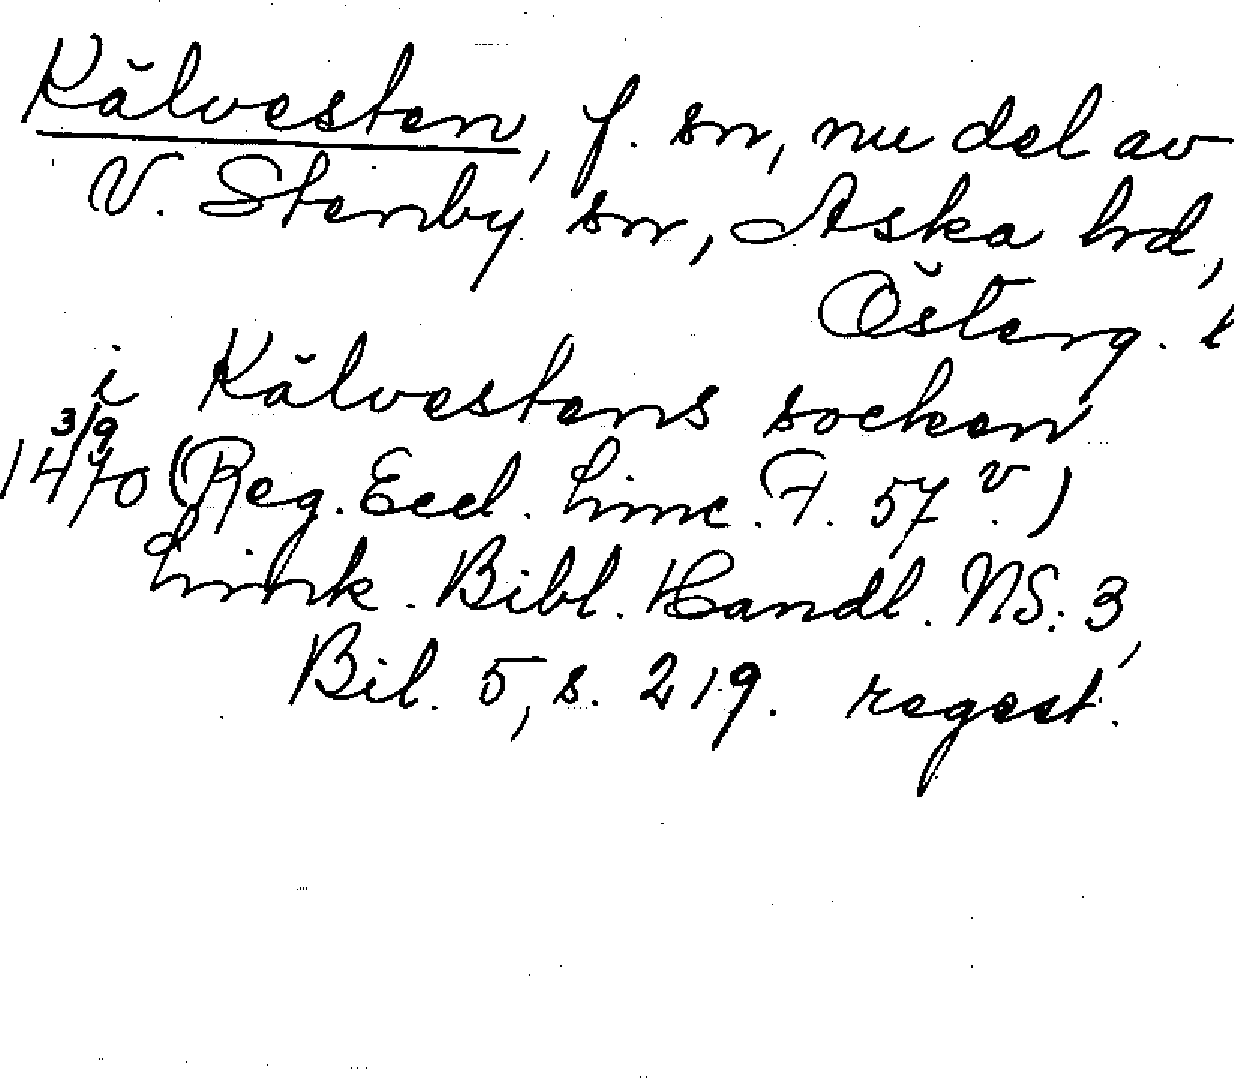 Kälvesten, f. sn, nu del av
V. Stenby sn, Aska hd,
Österg. l
i Kälvestens socken
3/9
1470 (Reg. Eccl. Linc. F. 57 v.)
Link. Bibl. Handl. NS: 3,
Bil. 5, s. 219. regest.